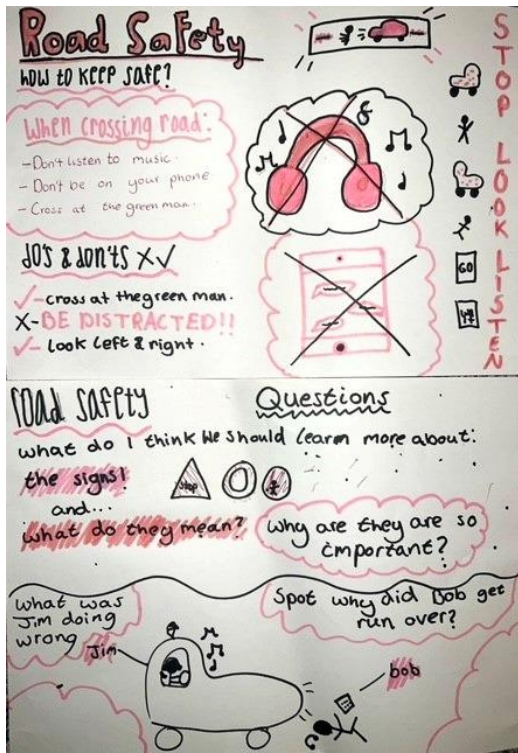 Road Safety
how to keep safe?
When crossing road:
- Don't listen to music.
- Don't be on your phone
- Cross at the green man.
do's & don'ts X✓
✓ - cross at the green man.
X - BE DISTRACTED!!
✓ - look left & right.
STOP LOOK LISTEN
GO
road safety
Questions
what do I think we should learn more about:
the signs!
stop
and...
what do they mean?
why are they are so
important?
What was
Jim doing
wrong
Jim
Spot why did Bob get
run over?
bob